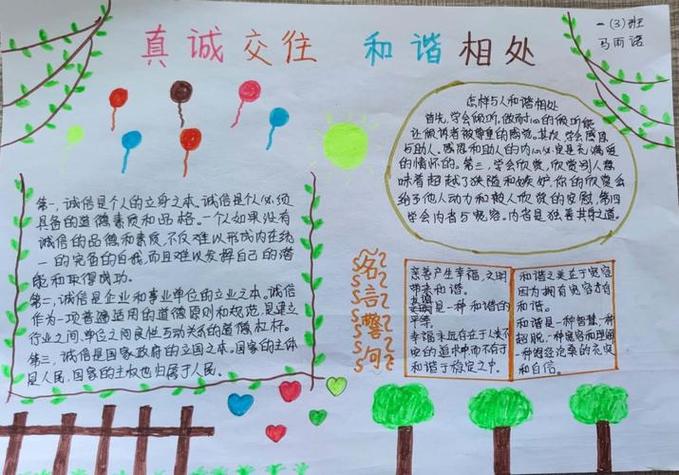 真诚交往 和谐相处
一(3)班
马雨诺
怎样与人和谐相处
首先,学会倾听,做耐心的倾听能
让倾诉者被尊重的感觉。其次,学会感恩
与助人、感恩和助人的内心必定是充满爱
的情怀的。第三,学会欣赏,欣赏别人意
味着超越了狭隘和嫉妒,你的欣赏会
给予他人动力和鼓人欣赏的安慰,第四
学会内省与宽容。内省是独善其身之道。
第一,诚信是个人的立身之本。诚信是个人必须
具备的道德素质和品格。一个人如果没有
诚信的品德和素质,不仅难以形成内在统
一的完备的自我,而且难以发挥自己的潜
能和取得成功。
第二,诚信是企业和事业单位的立业之本。诚信
作为一项普遍适用的道德原则和规范,是建立
行业之间,单位之间良性互动关系的道德杠杆。
第三,诚信是国家政府的立国之本。国家的主体
是人民,国家的主权也归属于人民。
名言警句
亲善产生幸福,文明
带来和谐。
友谊是一种和谐的
平等。
幸福永远存在于人类不
安的追求中而不存
和谐于稳定之中。
和谐之美在于宽容
因为拥有宽容才有
和谐。
和谐是一种智慧,一种
超脱,一种宽容和理解
一种饱经沧桑的充实
和自信。